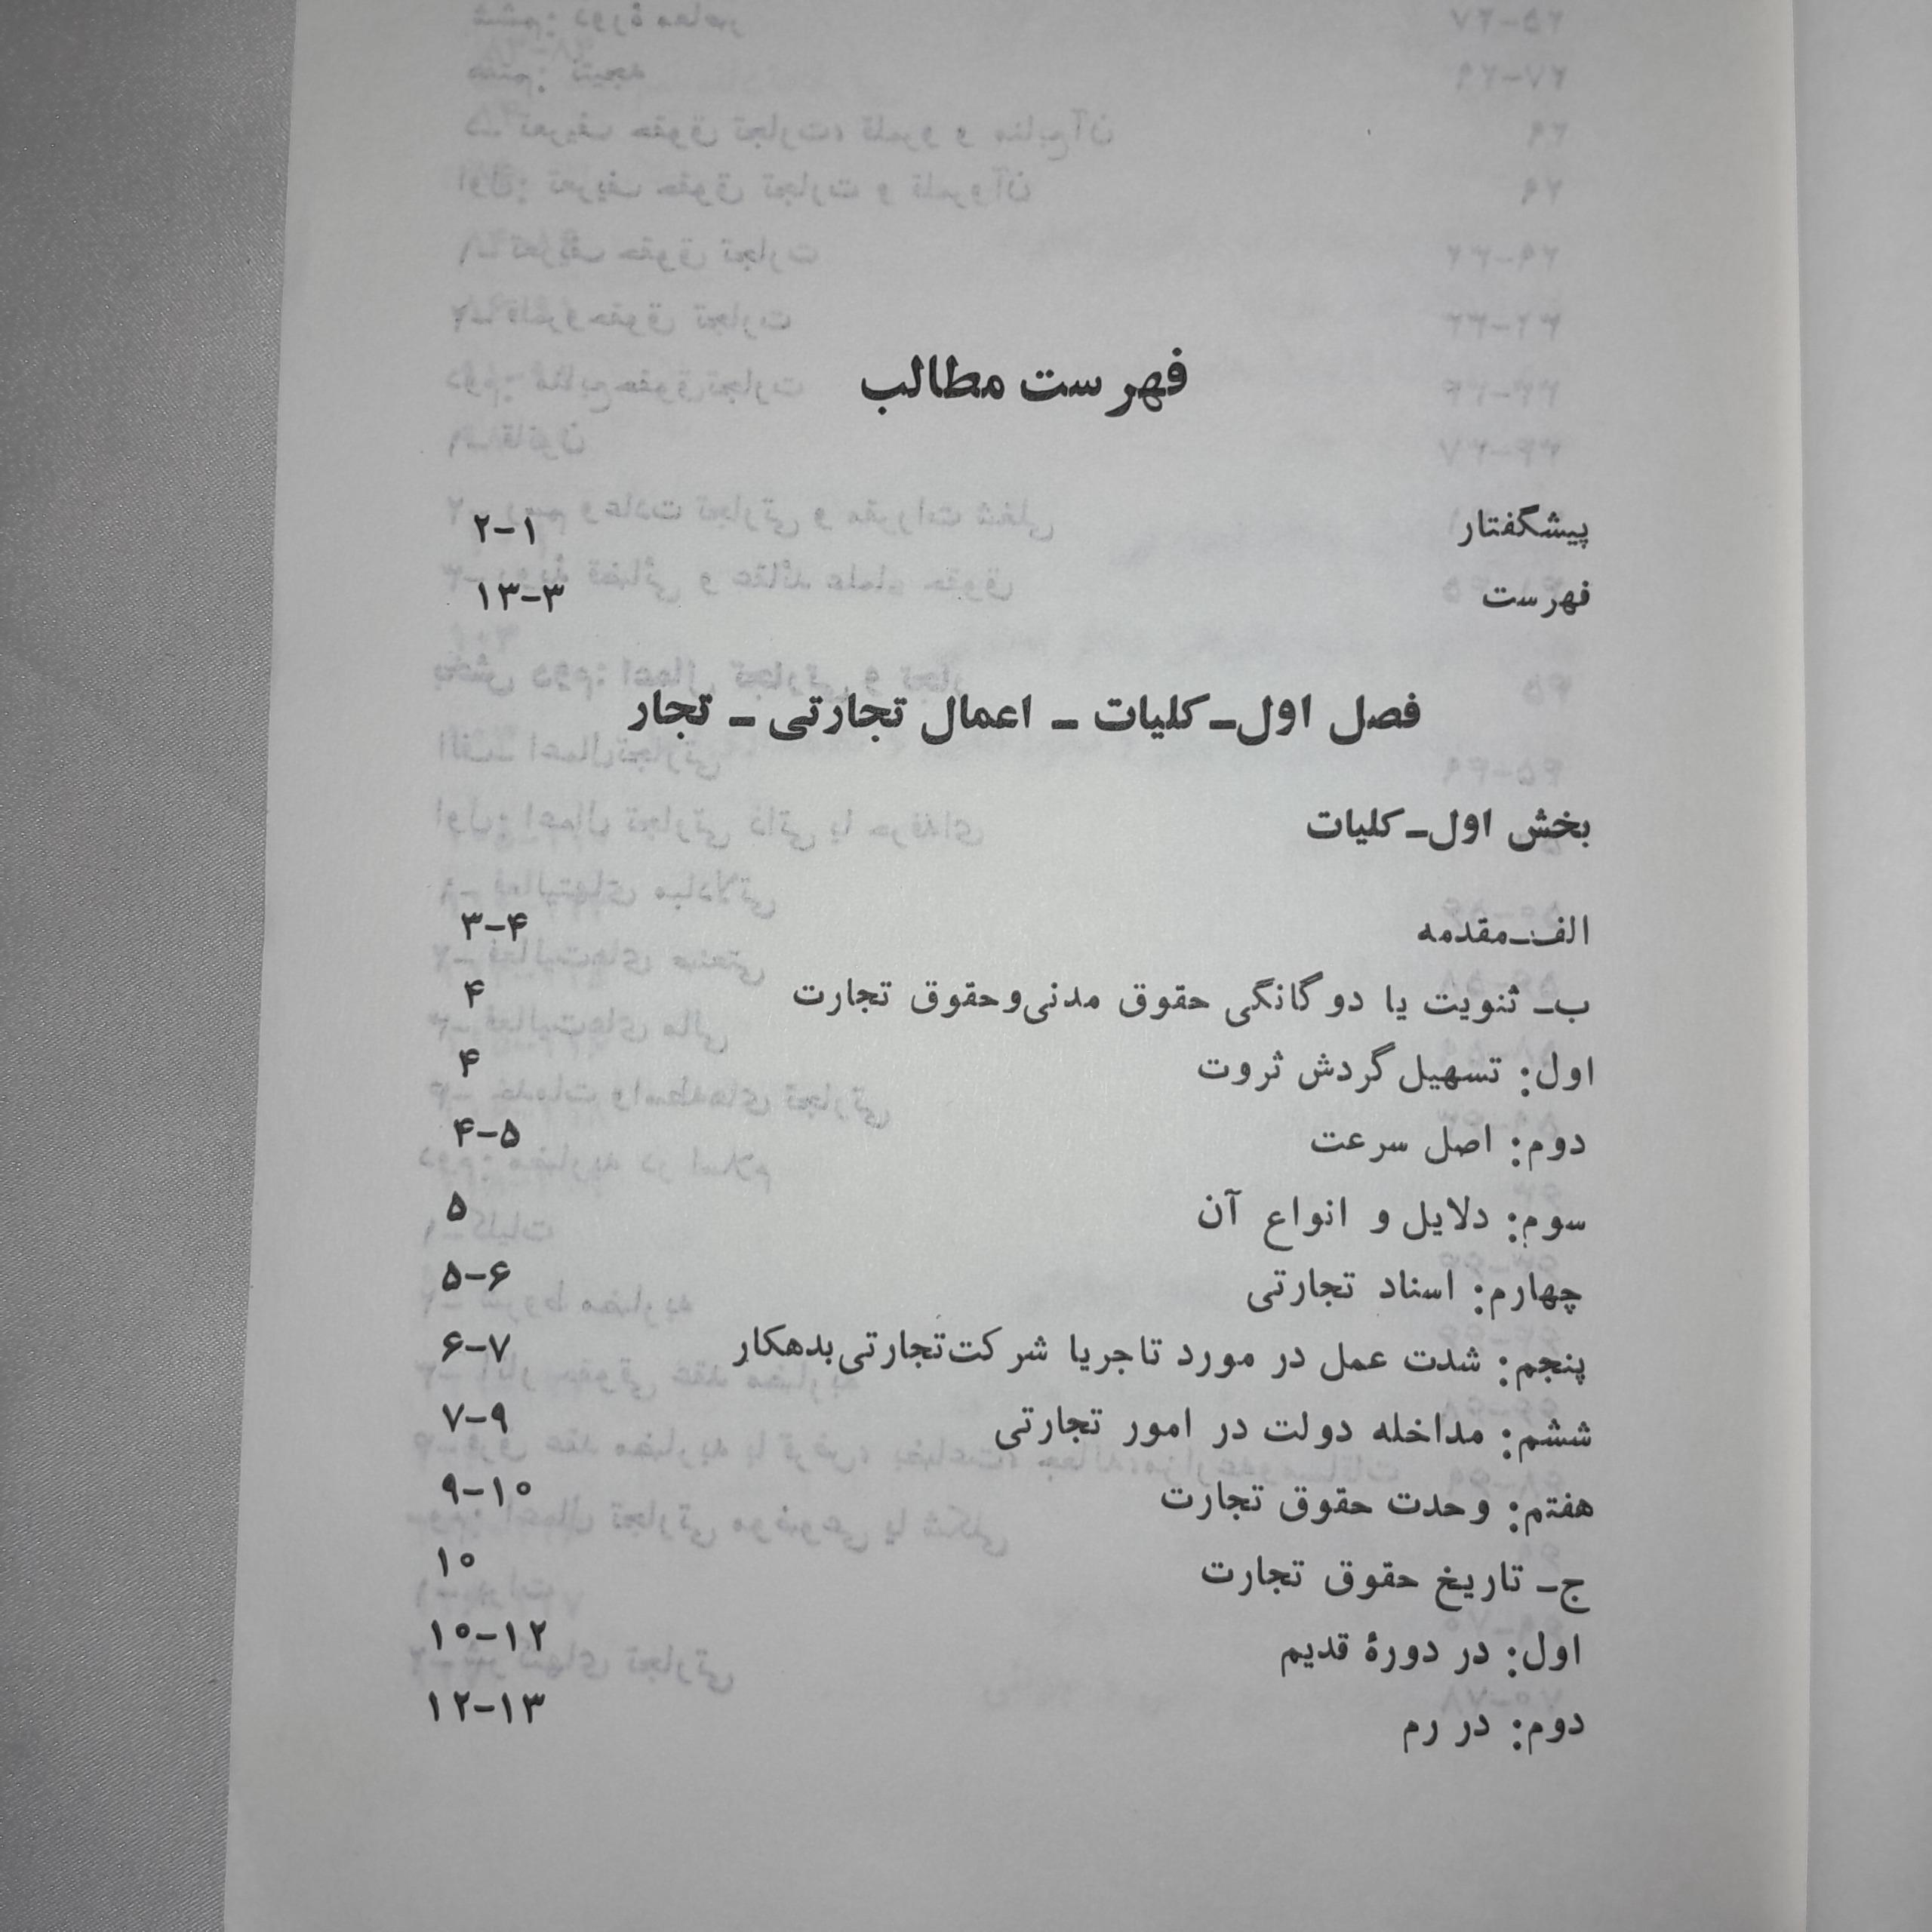 فهرست مطالب
پیشگفتار ۱-۲
فهرست ۳-۱۳
فصل اول ـ کلیات ـ اعمال تجارتی ـ تجار
بخش اول ـ کلیات
الف ـ مقدمه ۳-۴
ب ـ ثنویت یا دوگانگی حقوق مدنی و حقوق تجارت ۴
اول: تسهیل گردش ثروت ۴
دوم: اصل سرعت ۴-۵
سوم: دلایل و انواع آن ۵
چهارم: اسناد تجارتی ۵-۶
پنجم: شدت عمل در مورد تاجر یا شرکت تجارتی بدهکار ۶-۷
ششم: مداخله دولت در امور تجارتی ۷-۹
هفتم: وحدت حقوق تجارت ۹-۱۰
ج ـ تاریخ حقوق تجارت ۱۰
اول: در دورهٔ قدیم ۱۰-۱۲
دوم: در رم ۱۲-۱۳